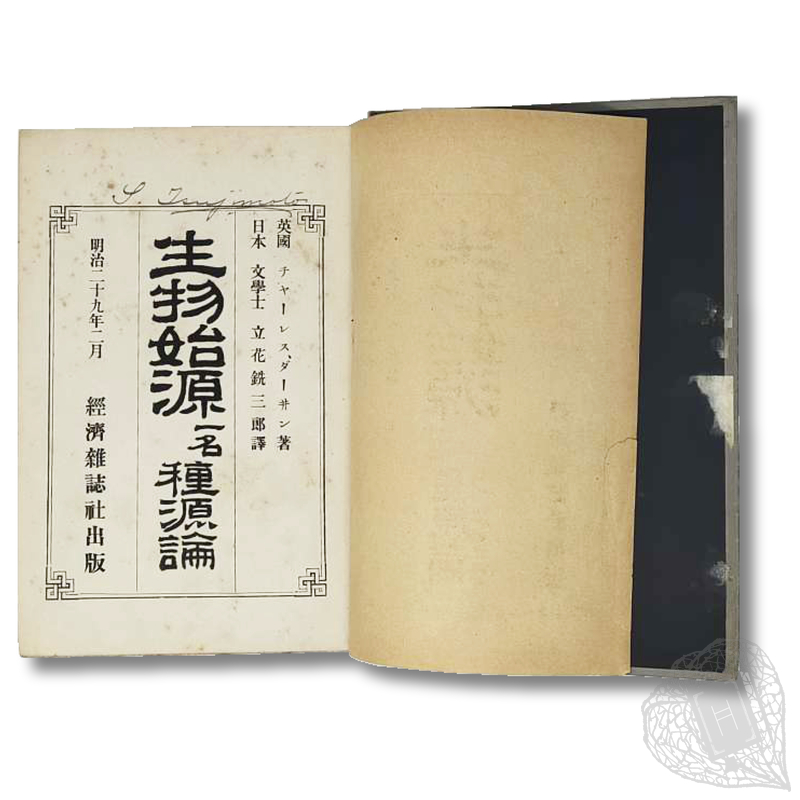 S. Tsujimoto
英國 チャーレス、ダーヰン著
日本 文學士 立花銑三郎譯
生物始源 一名 種源論
明治二十九年二月 經濟雜誌社出版
H